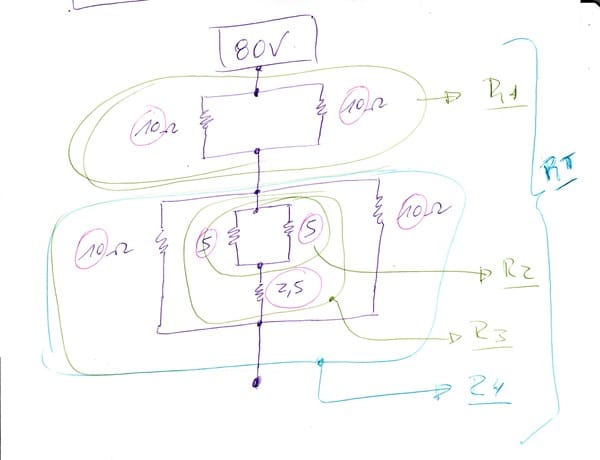 80V
10Ω 10Ω R1
RT
10Ω 5 5 10Ω
2,5 R2
R3
R4